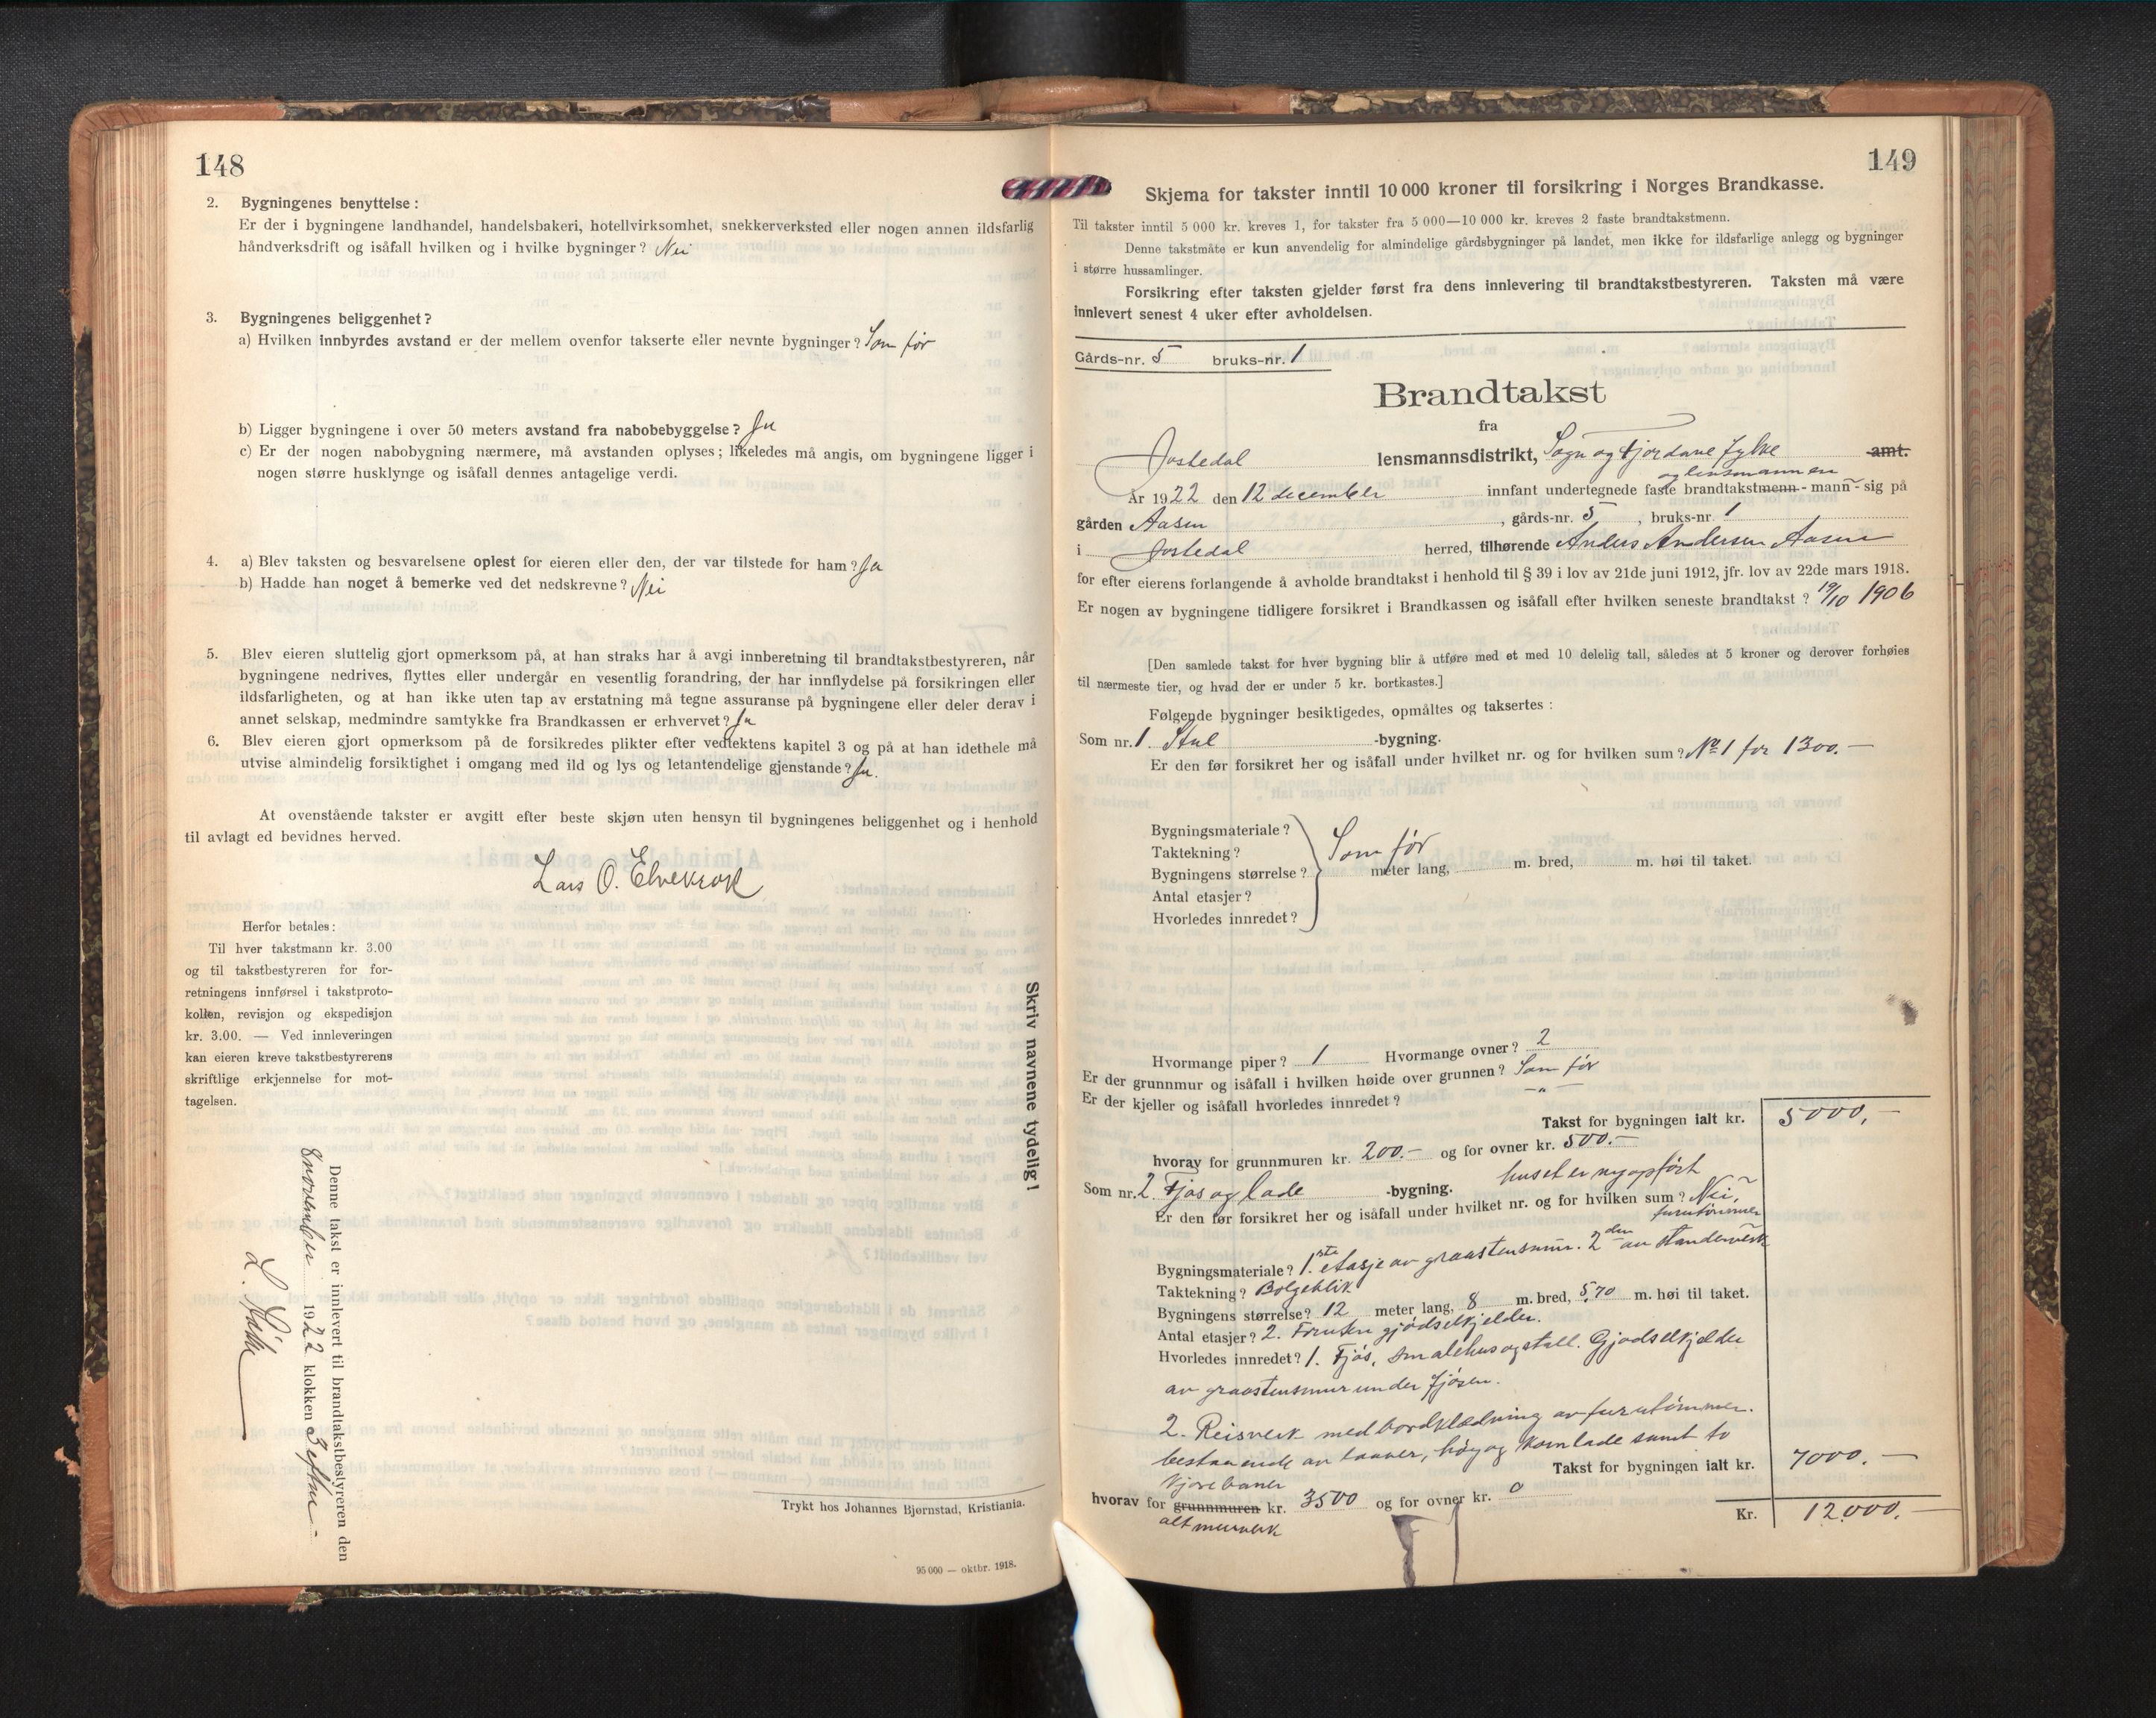 148
2. Bygningenes benyttelse :
Er der i bygningene landhandel, handelsbakeri, hotellvirksomhet, snekkerverksted eller nogen annen ildsfarlig
håndverksdrift og isåfall hvilken og i hvilke bygninger ? Nei
3. Bygningenes beliggenhet ?
a) Hvilken innbyrdes avstand er der mellem ovenfor takserte eller nevnte bygninger ? Som før
b) Ligger bygningene i over 50 meters avstand fra nabobebyggelse ? Ja
c) Er der nogen nabobygning nærmere, må avstanden oplyses ; likeledes må angis, om bygningene ligger i
nogen større husklynge og isåfall dennes antagelige verdi.
4. a) Blev taksten og besvarelsene oplest for eieren eller den, der var tilstede for ham ? Ja
b) Hadde han noget å bemerke ved det nedskrevne ? Nei
5. Blev eieren sluttelig gjort opmerksom på, at han straks har å avgi innberetning til brandtakstbestyreren, når
bygningene nedrives, flyttes eller undergår en vesentlig forandring, der har innflydelse på forsikringen eller
ildsfarligheten, og at han ikke uten tap av erstatning må tegne assuranse på bygningene eller deler derav i
annet selskap, medmindre samtykke fra Brandkassen er erhvervet ? Ja
6. Blev eieren gjort opmerksom på de forsikredes plikter efter vedtektens kapitel 3 og på at han idethele må
utvise almindelig forsiktighet i omgang med ild og lys og letantendelige gjenstande ? Ja.
At ovenstående takster er avgitt efter beste skjøn uten hensyn til bygningenes beliggenhet og i henhold
til avlagt ed bevidnes herved.
Lars O. Elvekrok
Herfor betales :
Til hver takstmann kr. 3.00
og til takstbestyreren for for-
retningens innførsel i takstproto-
kollen, revisjon og ekspedisjon
kr. 3.00. — Ved innleveringen
kan eieren kreve takstbestyrerens
skriftlige erkjennelse for mot-
tagelsen.
Skriv navnene tydelig !
Denne takst er innlevert til brandtakstbestyreren den
8 november 1922 klokken 3 efter -
Trykt hos Johannes Bjørnstad, Kristiania.
95 000 — oktbr. 1918.
149
Skjema for takster inntil 10 000 kroner til forsikring i Norges Brandkasse.
Til takster inntil 5 000 kr. kreves 1, for takster fra 5 000—10 000 kr. kreves 2 faste brandtakstmenn.
Denne takstmåte er kun anvendelig for almindelige gårdsbygninger på landet, men ikke for ildsfarlige anlegg og bygninger
i større hussamlinger.
Forsikring efter taksten gjelder først fra dens innlevering til brandtakstbestyreren. Taksten må være
innlevert senest 4 uker efter avholdelsen.
Gårds-nr. 5 bruks-nr. 1
Brandtakst
fra
Jostedal lensmannsdistrikt, Sogn og Fjordane fylke amt.
og lensmannen
År 1922 den 12 december innfant undertegnede faste brandtakstmenn - mann - sig på
gården Aasen , gårds-nr. 5 , bruks-nr. 1
i Jostedal herred, tilhørende Anders Andersen Aasen
for efter eierens forlangende å avholde brandtakst i henhold til § 39 i lov av 21de juni 1912, jfr. lov av 22de mars 1918.
Er nogen av bygningene tidligere forsikret i Brandkassen og isåfall efter hvilken seneste brandtakst ? 19/10 1906
[Den samlede takst for hver bygning blir å utføre med et med 10 delelig tall, således at 5 kroner og derover forhøies
til nærmeste tier, og hvad der er under 5 kr. bortkastes.]
Følgende bygninger besiktigedes, opmåltes og taksertes :
Som nr. 1. Stue -bygning.
Er den før forsikret her og isåfall under hvilket nr. og for hvilken sum ? No 1 for 1300.—
Bygningsmateriale ?
Taktekning ? Som før
Bygningens størrelse ? meter lang, m. bred, m. høi til taket.
Antal etasjer ?
Hvorledes innredet ?
Hvormange piper ? 1 Hvormange ovner ? 2
Er der grunnmur og isåfall i hvilken høide over grunnen ? Som før
Er der kjeller og isåfall hvorledes innredet ? — " —
Takst for bygningen ialt kr. 5000,—
hvorav for grunnmuren kr. 200.— og for ovner kr. 500.—
huset er nyopført
Som nr. 2. Fjøs og lade -bygning.
Er den før forsikret her og isåfall under hvilket nr. og for hvilken sum ? Nei,
furutømmer
Bygningsmateriale ? 1.ste etasje av graastensmur. 2den av standerverk
Taktekning ? Bølgeblik
Bygningens størrelse ? 12 meter lang, 8 m. bred, 5,70 m. høi til taket.
Antal etasjer ? 2. Foruten gjødselkjelder.
Hvorledes innredet ? 1. Fjøs, smalehus og stall. Gjødselkjelder
av graastensmur under fjøsen.
2. Reisverk med bordklædning av furutømmer.
bestaaende av laaver, høy og kornlade samt to
kjørebaner
Takst for bygningen ialt kr. 7000.—
hvorav for grunnmuren kr. 3500 og for ovner kr. 0
alt murverk
Kr. 12.000.—